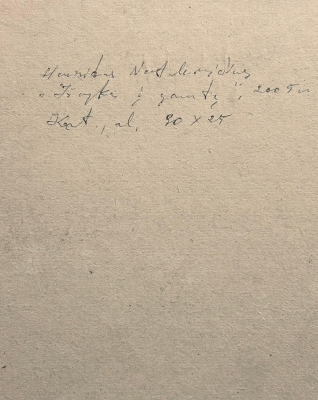 Henrikas Natalevičius
„Išvyka į gamtą“, 2005 m
Kart., al. 30 x 25